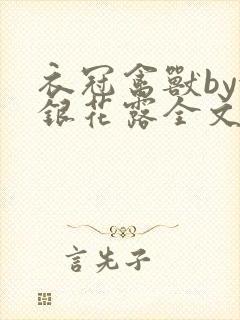 衣冠禽獸by
銀花露全文
言先子